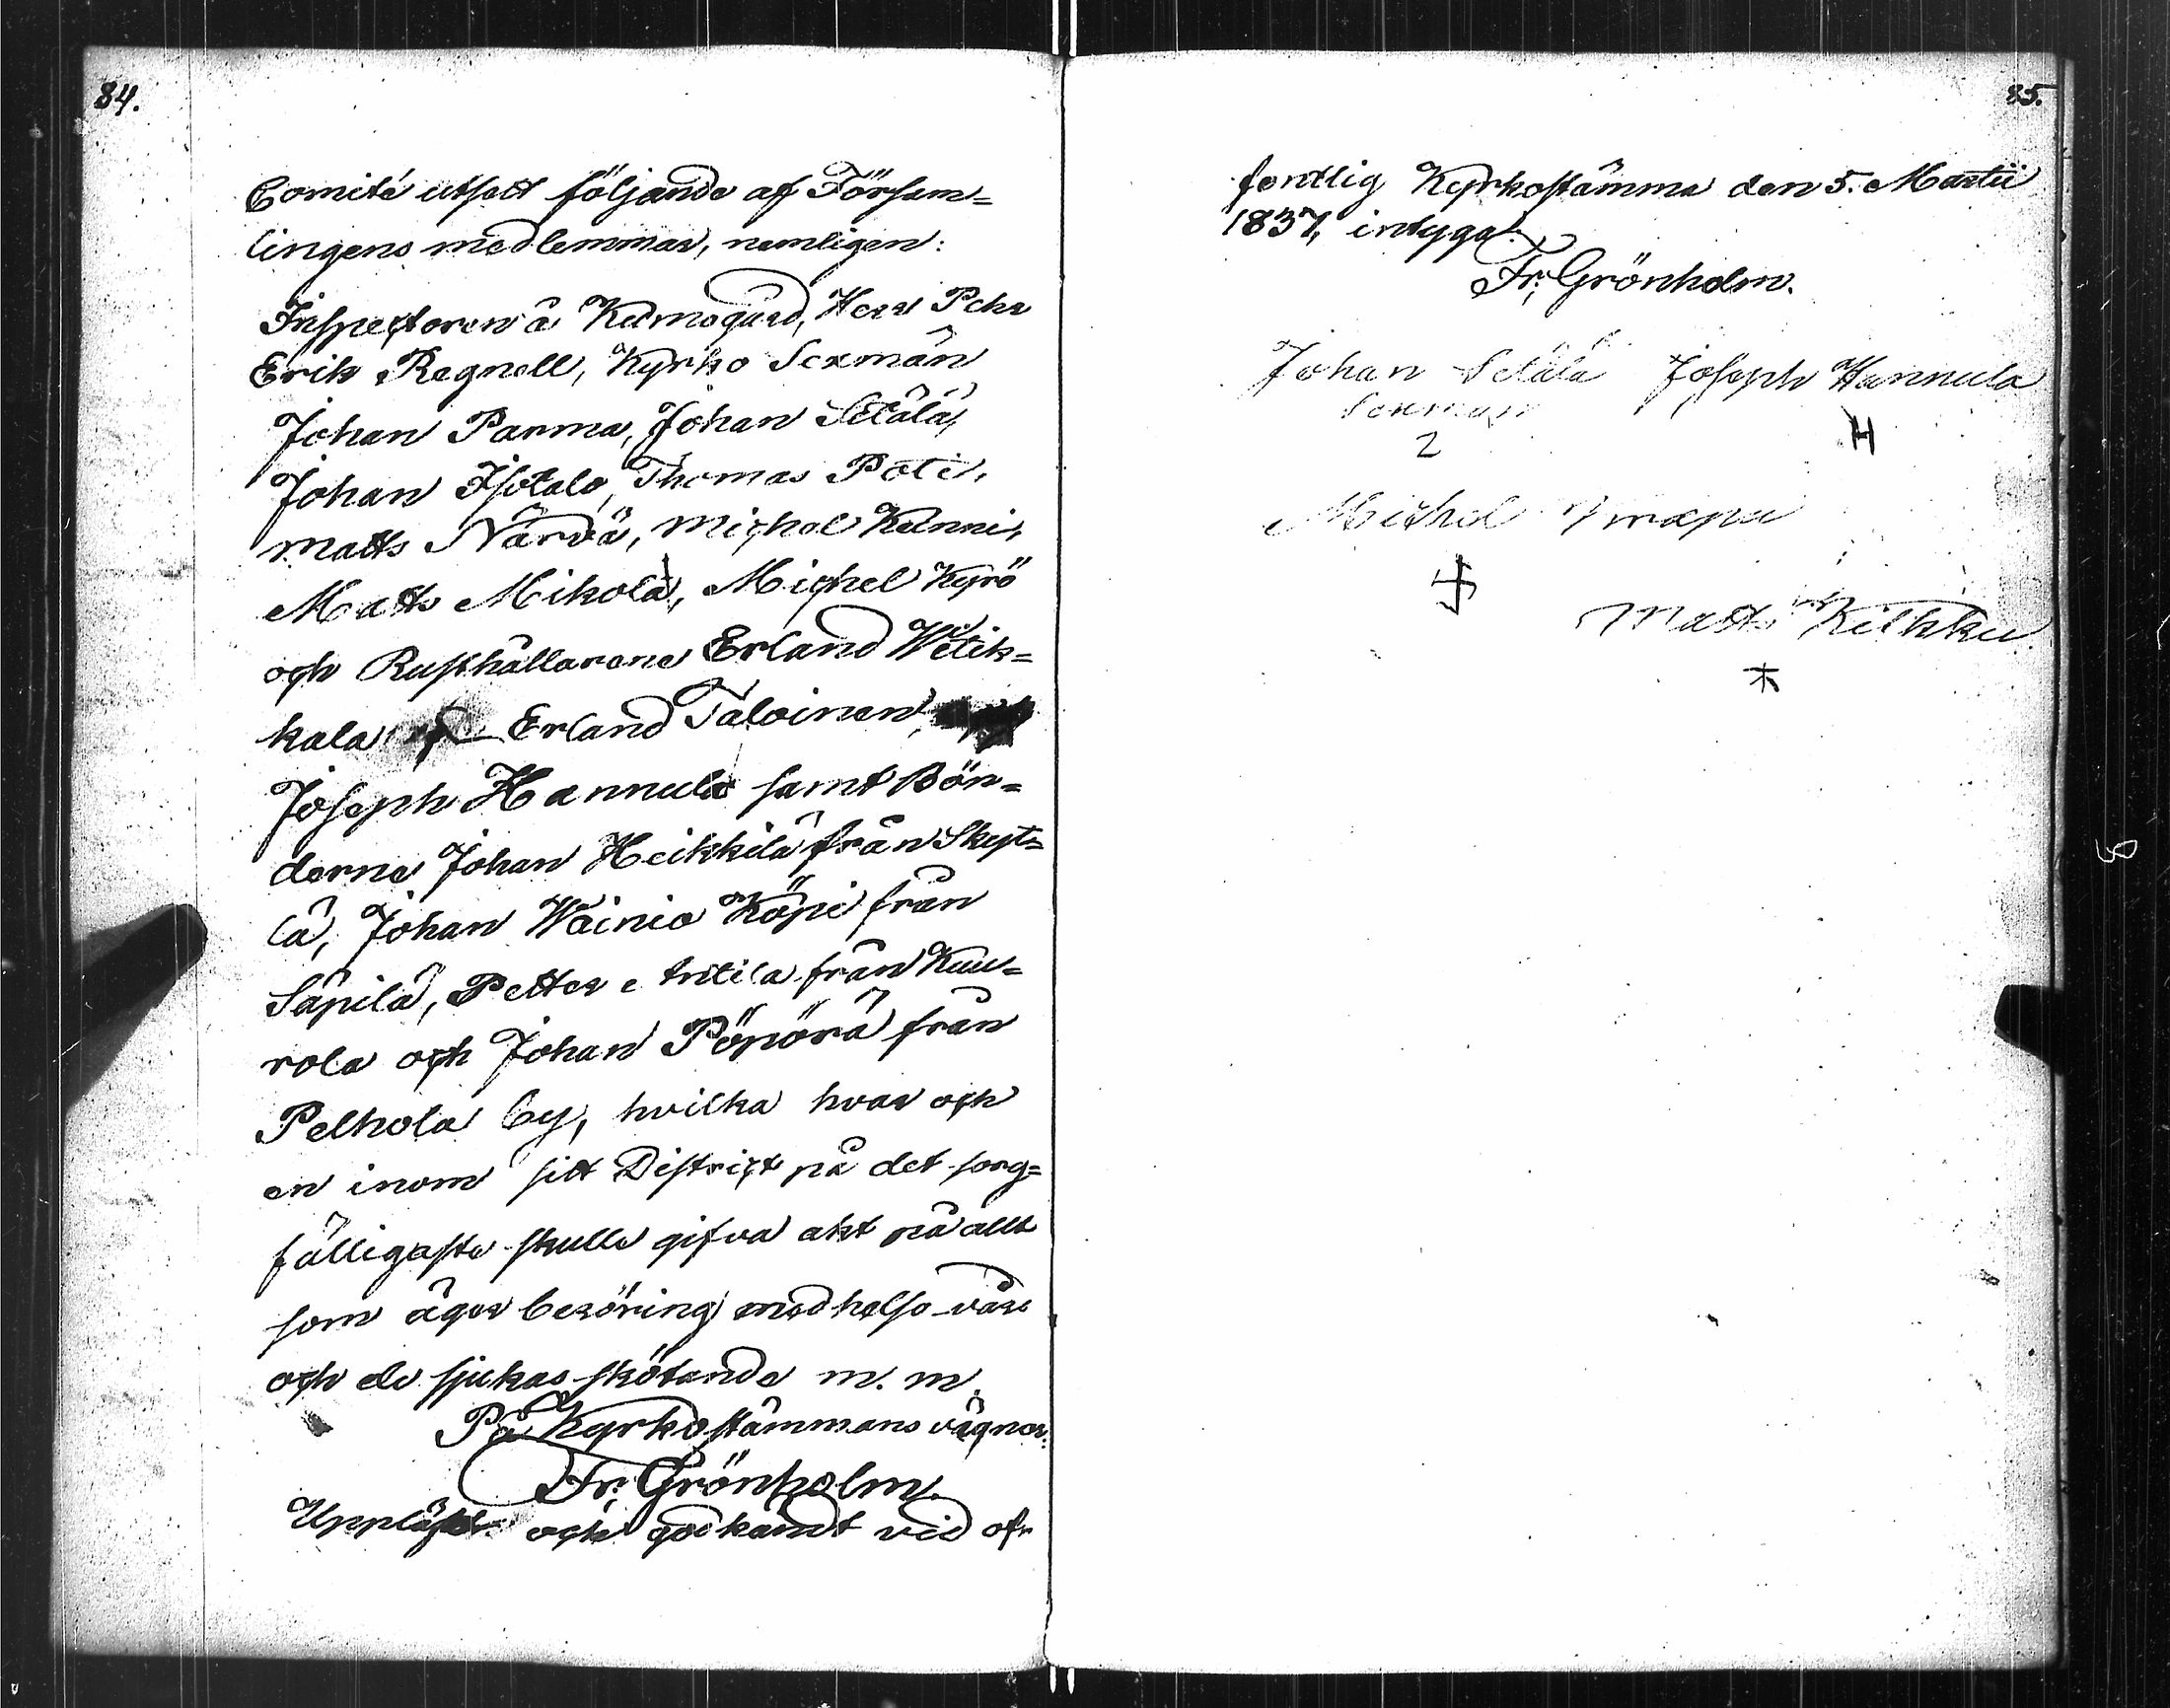 84.
Comité utsett följande af Försam=
lingens medlemmar, nemligen:
Inspectoren å Kumogård, Herr Pehr
Erik Regnell, Kyrko Sexmän
Johan Parma, Johan Sëtälä,
Johan Isotalo, Thomas Poti,
Matts Närvä, Michel Kanni,
Matts Mikola, Michel Kyrö
och Rusthållarene Erland Wetik=
kala Erland Taloinen,
Joseph Hannula samt Bön=
derne Johan Heikkilä från Skyt=
lä, Johan Wäinio Köpi från
Säpilä, Petter Antila från Kuu=
rola och Johan Pöpörä från
Pelhola by, hvilka hvar och
en inom sitt District på det sorg=
fälligaste skulle gifva akt på allt
som äger beröring med helso-vård
och de sjukas skötande m. m.
På Kyrkostämmans vägnar:
Fr: Grönholm.
Uppläst och godkändt vid of-
85.
fentlig Kyrkostämma den 5. Martii
1837, intyga:
Fr: Grönholm.
Johan Setälä Joseph Hannula
Sexman
2 H
Michel
Matts Kilkku